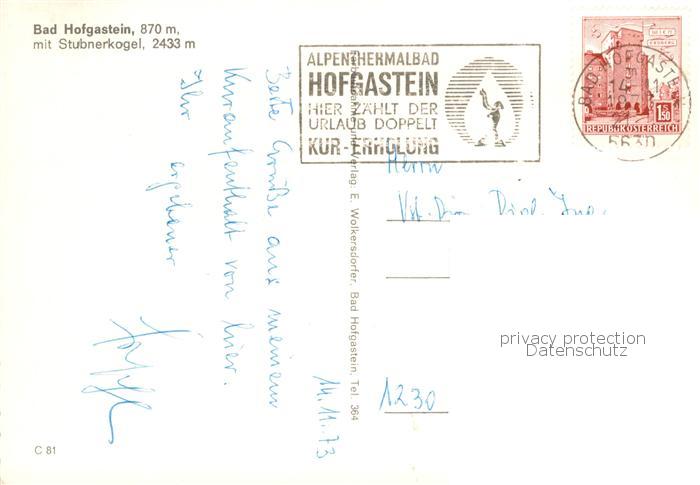 Bad Hofgastein, 870 m,
mit Stubnerkogel, 2433 m
ALPENTHERMALBAD
HOFGASTEIN
HIER ZÄHLT DER
URLAUB DOPPELT
KUR-ERHOLUNG
REPUBLIK ÖSTERREICH
1.50
5630
Beste Grüße aus meinem
Kuraufenthalt von hier.
Ihr
ergebener
14.11.73
Verlag: E. Wolkersdorfer, Bad Hofgastein, Tel. 364
Herrn
Dipl. Ing.
1230
privacy protection
Datenschutz
C 81